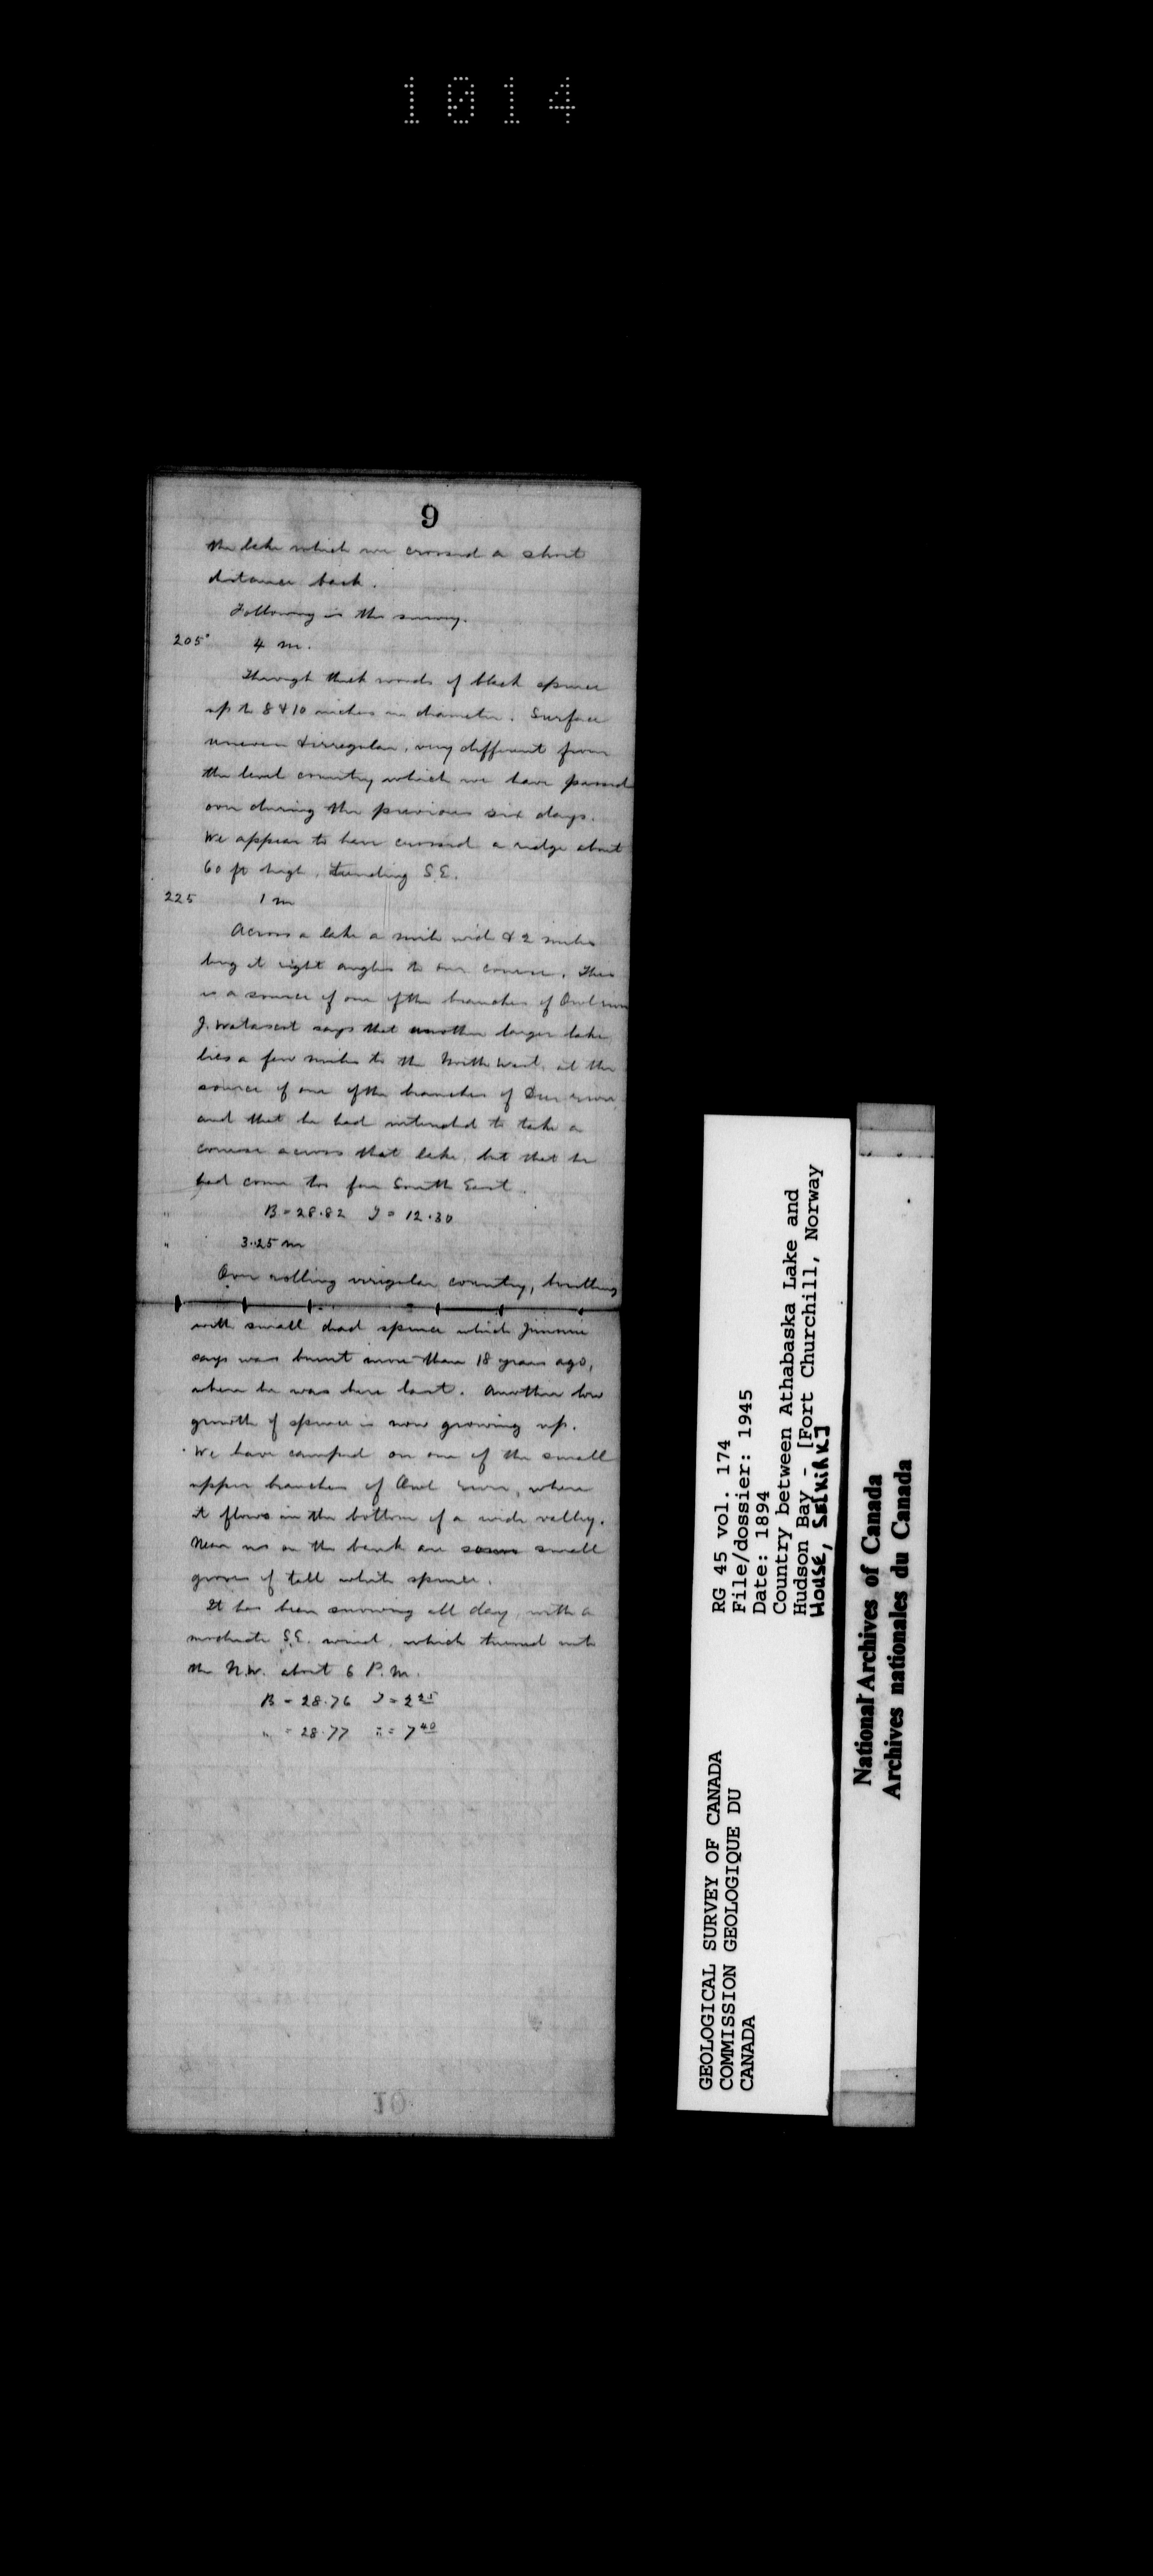 1014
9
the lake which we crossed a short
distance back.
Following is the survey.
205° 4 m.
Through thick woods of black spruce
up to 8 & 10 inches in diameter. Surface
uneven & irregular, very different from
the level country which we have passed
over during the previous six days.
We appear to have crossed a ridge about
60 ft high, trending S.E.
225 1 m
Across a lake a mile wide & 2 miles
long at right angles to our course. This
is a source of one of the branches of Owl river
J. says that another larger lake
lies a few miles to the North West, at the
source of one of the branches of Deer river
and that he had intended to take a
course across that lake, but that he
had come too far South East.
" B = 28.82 T = 12.30
" 3.25 m
Over rolling irregular country, bristling
with small dead spruce which Jimmie
says was burnt more than 18 years ago,
when he was here last. Another low
growth of spruce is now growing up.
We have camped on one of the small
upper branches of Owl river, where
it flows in the bottom of a wide valley.
Near us on the bank are some small
groves of tall white spruce.
It has been snowing all day, with a
moderate S.E. wind, which turned into
the N.W. about 6 P.M.
B = 28.76 T = 2 25
" = 28.77 " = 7 40
10
GEOLOGICAL SURVEY OF CANADA
COMMISSION GEOLOGIQUE DU
CANADA
RG 45 vol. 174
File/dossier: 1945
Date: 1894
Country between Athabaska Lake and
Hudson Bay - [Fort Churchill, Norway
House, Selkirk]
National Archives of Canada
Archives nationales du Canada